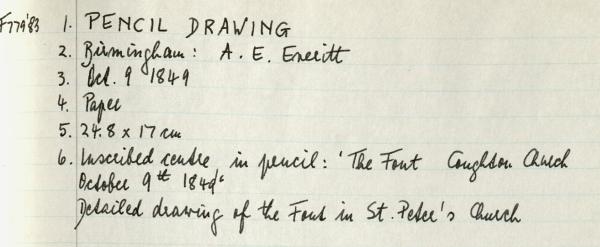 F779'83 1. PENCIL DRAWING
2. Birmingham: A. E. Everitt
3. Oct. 9 1849
4. Paper
5. 24.8 x 17 cm
6. Inscribed centre in pencil: 'The Font Coughton Church
October 9th 1849'
Detailed drawing of the Font in St. Peter's Church